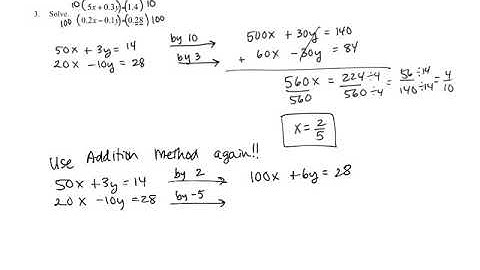 10(5x + 0.3y)=(1.4)10
3. Solve.
100(0.2x - 0.1y)=(0.28)100
50x + 3y = 14 by 10 → 500x + 30y = 140
20x - 10y = 28 by 3 → + 60x - 30y = 84
560x/560 = 224÷4/560÷4 = 56÷14/140÷14 = 4/10
x = 2/5
Use Addition method again!!
50x + 3y = 14 by 2 → 100x + 6y = 28
20x - 10y = 28 by -5 →